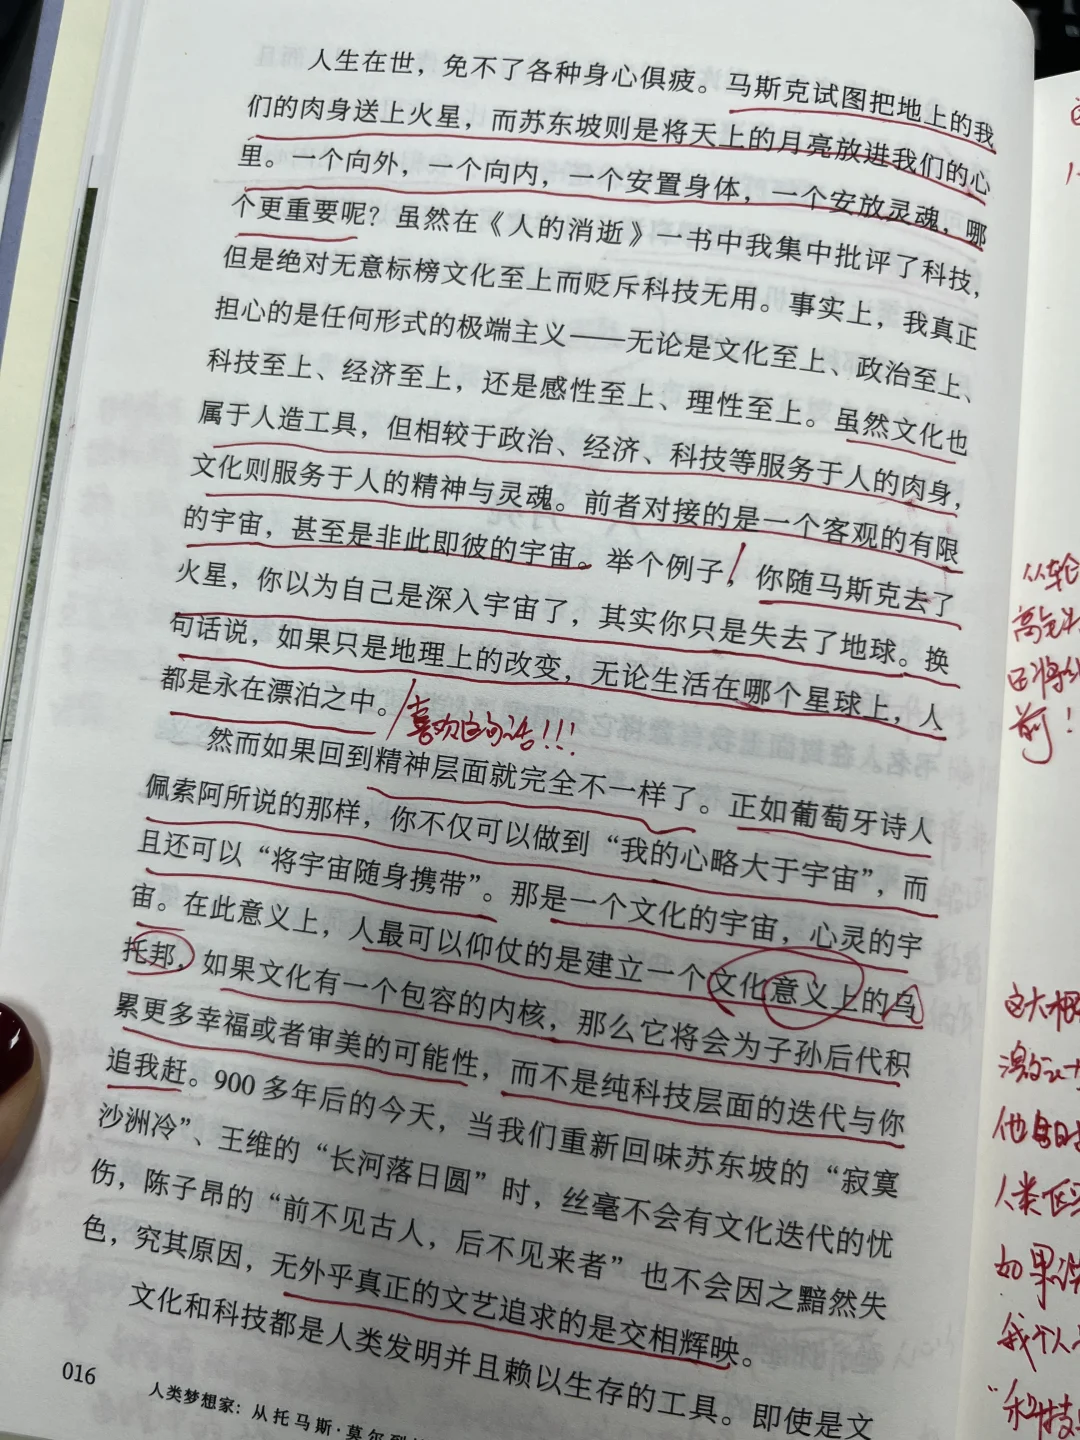 人生在世，免不了各种身心俱疲。马斯克试图把地上的我
们的肉身送上火星，而苏东坡则是将天上的月亮放进我们的心
里。一个向外，一个向内，一个安置身体，一个安放灵魂，哪
个更重要呢？虽然在《人的消逝》一书中我集中批评了科技，
但是绝对无意标榜文化至上而贬斥科技无用。事实上，我真正
担心的是任何形式的极端主义——无论是文化至上、政治至上、
科技至上、经济至上，还是感性至上、理性至上。虽然文化也
属于人造工具，但相较于政治、经济、科技等服务于人的肉身，
文化则服务于人的精神与灵魂。前者对接的是一个客观的有限
的宇宙，甚至是非此即彼的宇宙。举个例子，你随马斯克去了
火星，你以为自己是深入宇宙了，其实你只是失去了地球。换
句话说，如果只是地理上的改变，无论生活在哪个星球上，人
都是永在漂泊之中。
喜欢这句话!!!
然而如果回到精神层面就完全不一样了。正如葡萄牙诗人
佩索阿所说的那样，你不仅可以做到“我的心略大于宇宙”，而
且还可以“将宇宙随身携带”。那是一个文化的宇宙，心灵的宇
宙。在此意义上，人最可以仰仗的是建立一个文化意义上的乌
托邦，如果文化有一个包容的内核，那么它将会为子孙后代积
累更多幸福或者审美的可能性，而不是纯科技层面的迭代与你
追我赶。900 多年后的今天，当我们重新回味苏东坡的“寂寞
沙洲冷”、王维的“长河落日圆”时，丝毫不会有文化迭代的忧
伤，陈子昂的“前不见古人，后不见来者”也不会因之黯然失
色，究其原因，无外乎真正的文艺追求的是交相辉映。
文化和科技都是人类发明并且赖以生存的工具。即使是文
016
人类梦想家：从托马斯·莫尔到
从轮
前!
这大概
他
人类
如果说
我个人
“科技